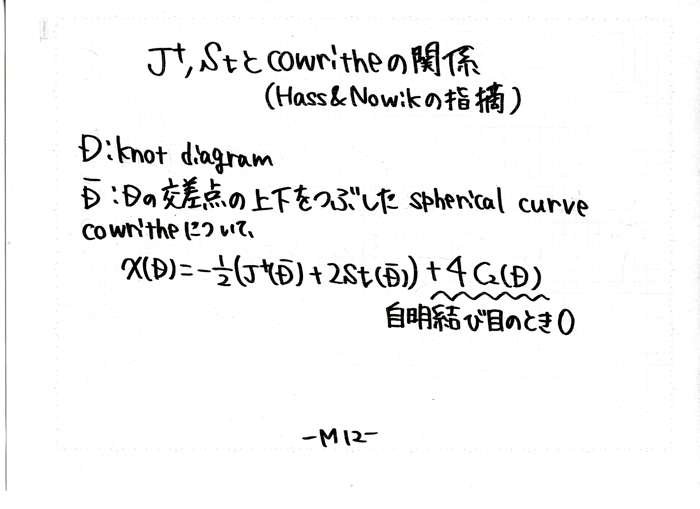 J⁺, Stとcowritheの関係
(Hass&Nowikの指摘)
D:knot diagram
D̄:Dの交差点の上下をつぶした spherical curve
cowritheについて、
x(D)=-1/2(J⁺(D̄)+2St(D̄))+4C₂(D)
自明結び目のとき0
-M12-